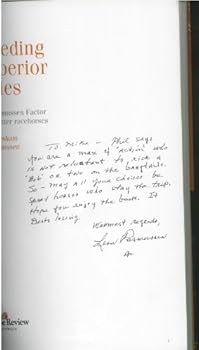 eding
perior
les
smussen Factor
tter racehorses
To Mike — Phil says
you are a man of "action" who
is not reluctant to risk a
"Bob" or two on the bangtails.
So — may all your choices be
good horses who stay the trip.
Hope you enjoy the book. It
Beats losing.
Warmest regards,
Leon Rasmussen
e Review